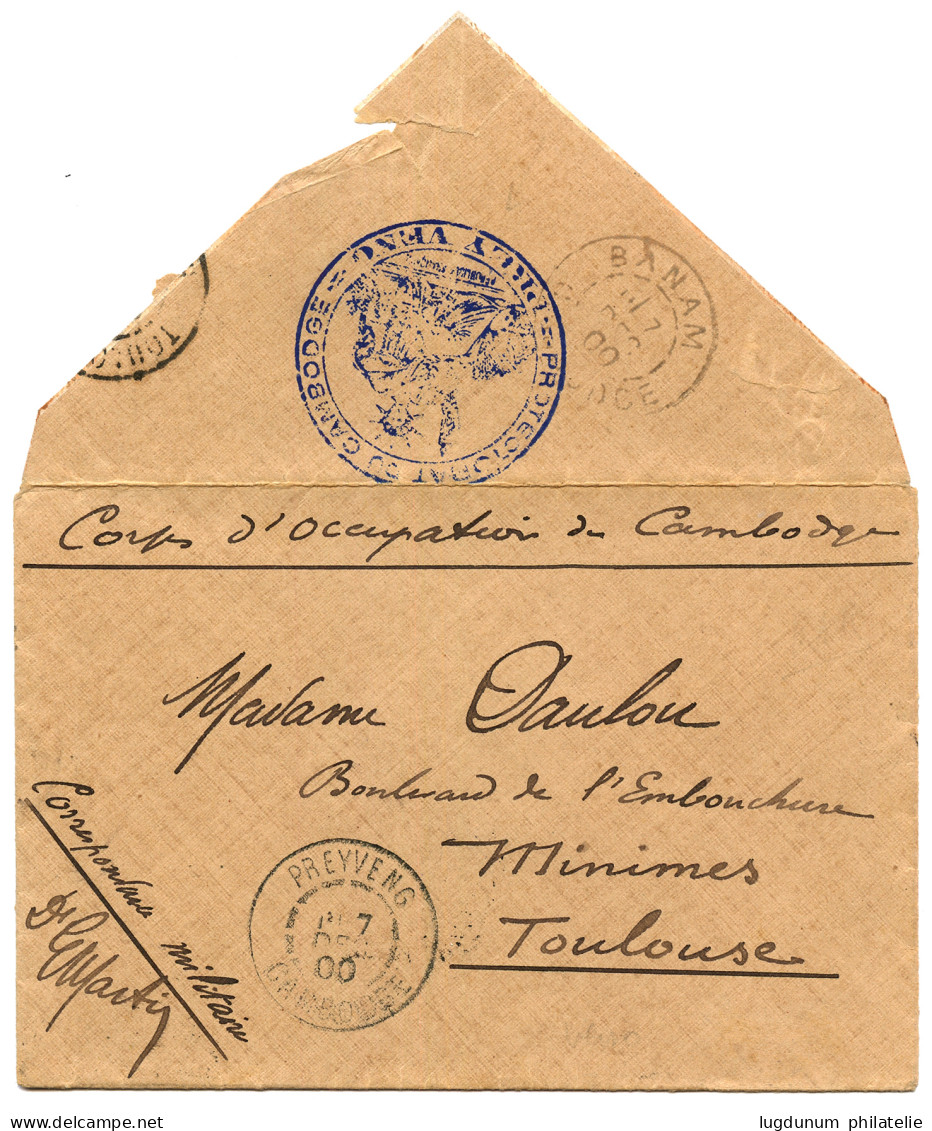 PROTECTORAT DU CAMBODGE = PREY VENG =
BANAM
7
00
TOUL
Corps d'Occupation du Cambodge
Madame Daulou
Boulevard de l'Embouchure
Minimes
Toulouse
Correspondance militaire
Dr GMartin
PREYVENG
7
00
CAMBODGE
lugdunum philatelie